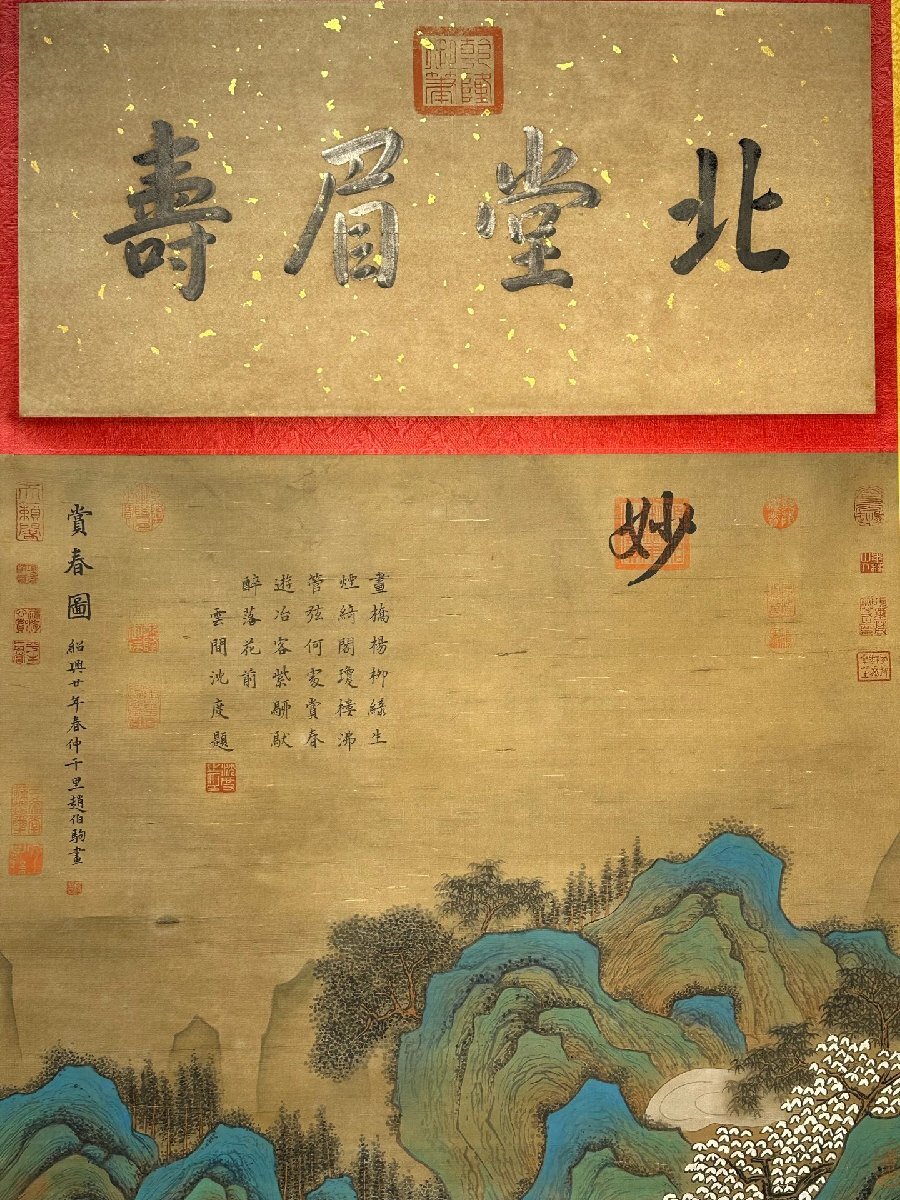 乾隆御筆
北堂眉壽
妙
畫橋楊柳綠生
煙綺閣瓊樓沸
管弦何處賞春
遊冶客紫駵馱
醉落花前
雲間沈度題
賞春圖 紹興廿年春仲千里趙伯駒畫